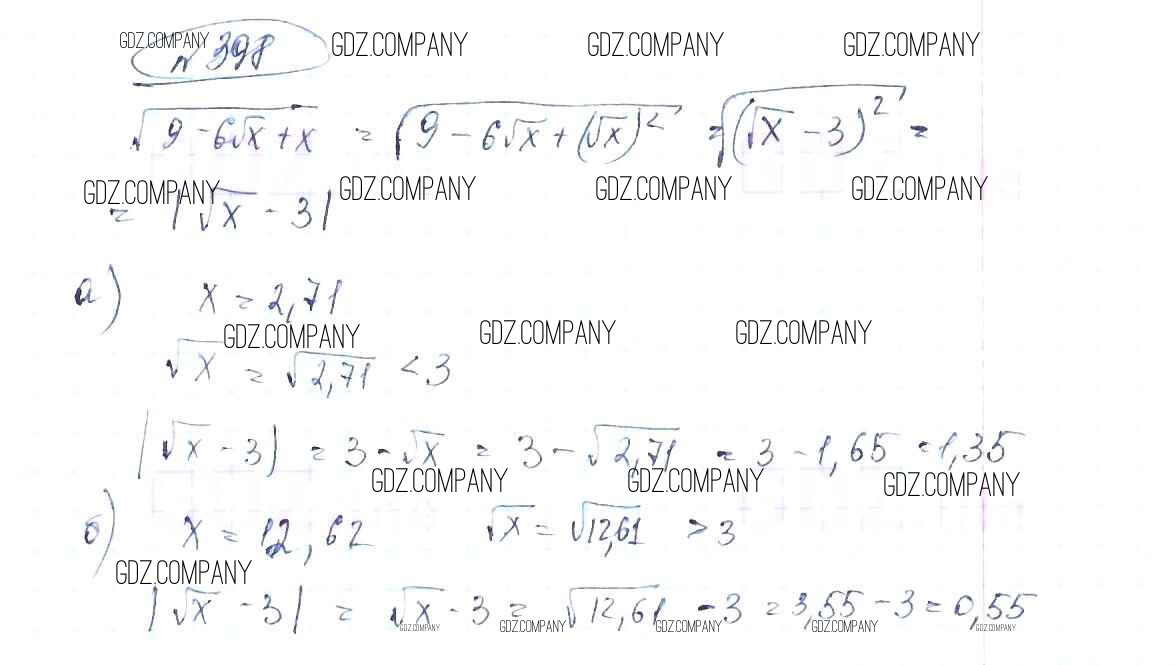 GDZ.COMPANY GDZ.COMPANY GDZ.COMPANY GDZ.COMPANY
№ 398
√(9 - 6√x + x) = √(9 - 6√x + (√x)²) = √((√x - 3)²) =
GDZ.COMPANY GDZ.COMPANY GDZ.COMPANY GDZ.COMPANY
= |√x - 3|
а) x = 2,71
GDZ.COMPANY GDZ.COMPANY GDZ.COMPANY
√x = √2,71 < 3
|√x - 3| = 3 - √x = 3 - √2,71 = 3 - 1,65 = 1,35
GDZ.COMPANY GDZ.COMPANY GDZ.COMPANY
б) x = 12,62 √x = √12,61 > 3
GDZ.COMPANY
|√x - 3| = √x - 3 = √12,61 - 3 = 3,55 - 3 = 0,55
GDZ.COMPANY GDZ.COMPANY GDZ.COMPANY GDZ.COMPANY GDZ.COMPANY